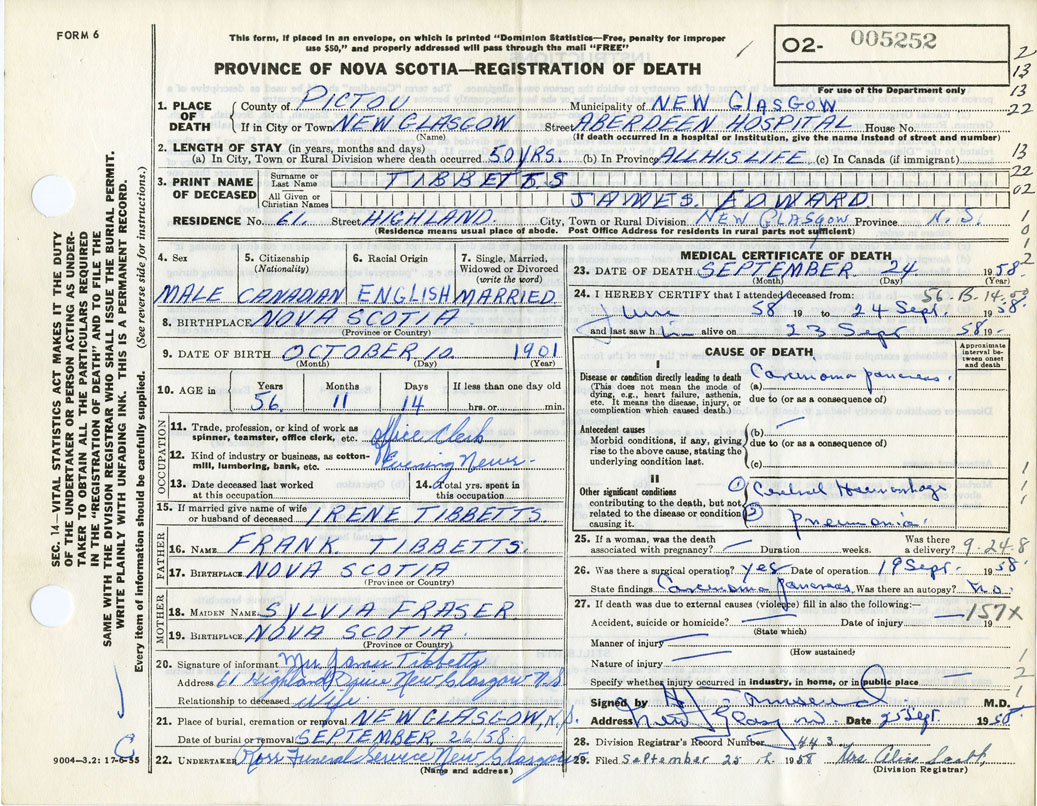 FORM 6
This form, if placed in an envelope, on which is printed "Dominion Statistics—Free, penalty for improper
use $50," and properly addressed will pass through the mail "FREE"
O2- 005252
For use of the Department only
PROVINCE OF NOVA SCOTIA—REGISTRATION OF DEATH
1. PLACE OF DEATH
County of PICTOU Municipality of NEW GLASGOW
If in City or Town NEW GLASGOW Street ABERDEEN HOSPITAL House No.
(Name) (If death occurred in a hospital or institution, give the name instead of street and number)
2. LENGTH OF STAY (in years, months and days)
(a) In City, Town or Rural Division where death occurred 50 YRS. (b) In Province ALL HIS LIFE (c) In Canada (if immigrant)
3. PRINT NAME OF DECEASED
Surname or Last Name TIBBETTS
All Given or Christian Names JAMES. EDWARD
RESIDENCE No. 61. Street HIGHLAND. City, Town or Rural Division NEW GLASGOW Province N.S.
(Residence means usual place of abode. Post Office Address for residents in rural parts not sufficient)
2
13
13
22
13
22
02
1
0
1
2
4. Sex 5. Citizenship (Nationality) 6. Racial Origin 7. Single, Married, Widowed or Divorced (write the word)
MALE CANADIAN ENGLISH MARRIED
8. BIRTHPLACE NOVA SCOTIA.
(Province or Country)
9. DATE OF BIRTH OCTOBER 10. 1901
(Month) (Day) (Year)
10. AGE in Years Months Days If less than one day old
56. 11 14 hrs. or min.
OCCUPATION
11. Trade, profession, or kind of work as
spinner, teamster, office clerk, etc. Office Clerk
12. Kind of industry or business, as cotton-
mill, lumbering, bank, etc. Evening News-
13. Date deceased last worked
at this occupation
14. Total yrs. spent in
this occupation
15. If married give name of wife
or husband of deceased IRENE TIBBETTS
FATHER
16. NAME FRANK. TIBBETTS.
17. BIRTHPLACE NOVA SCOTIA
(Province or Country)
MOTHER
18. MAIDEN NAME SYLVIA FRASER
19. BIRTHPLACE NOVA SCOTIA.
(Province or Country)
20. Signature of informant Mrs James Tibbetts
Address 61 Highland Drive New Glasgow N.S
Relationship to deceased Wife
21. Place of burial, cremation or removal NEW GLASGOW, N.S.
Date of burial or removal SEPTEMBER 26/58
22. UNDERTAKER Ross Funeral Service New Glasgow
(Name and address)
MEDICAL CERTIFICATE OF DEATH
23. DATE OF DEATH SEPTEMBER 24 1958.
(Month) (Day) (Year)
56-B-14-
24. I HEREBY CERTIFY that I attended deceased from:
June 58 19 to 24 Sept. 1958.
and last saw h im alive on 23 Sept 58 19
CAUSE OF DEATH
Approximate interval between onset and death
I
Disease or condition directly leading to death
(This does not mean the mode of
dying, e.g., heart failure, asthenia,
etc. It means the disease, injury, or
complication which caused death.)
(a) Carcinoma pancreas.
due to (or as a consequence of)
Antecedent causes
Morbid conditions, if any, giving
rise to the above cause, stating the
underlying condition last.
(b)
due to (or as a consequence of)
(c)
II
Other significant conditions
contributing to the death, but not
related to the disease or condition
causing it.
1 Cerebral Haemorrhage
2 pneumonia.
25. If a woman, was the death
associated with pregnancy? Duration weeks. Was there
a delivery? 9-24-8
26. Was there a surgical operation? yes Date of operation 19 Sept. 1958.
State findings Carcinoma pancreas Was there an autopsy? No.
27. If death was due to external causes (violence) fill in also the following:—
157X
Accident, suicide or homicide? Date of injury 19
(State which)
Manner of injury
(How sustained)
Nature of injury
Specify whether injury occurred in industry, in home, or in public place
Signed by M.D.
Address New Glasgow. Date 25 Sept. 1958.
28. Division Registrar's Record Number 443
29. Filed September 25 th 1958 Mrs. Alice Scott,
(Division Registrar)
1
1
1
1
1
1
2
1
SEC. 14—VITAL STATISTICS ACT MAKES IT THE DUTY
OF THE UNDERTAKER OR PERSON ACTING AS UNDER-
TAKER TO OBTAIN ALL THE PARTICULARS REQUIRED
IN THE "REGISTRATION OF DEATH" AND TO FILE THE
SAME WITH THE DIVISION REGISTRAR WHO SHALL ISSUE THE BURIAL PERMIT.
WRITE PLAINLY WITH UNFADING INK. THIS IS A PERMANENT RECORD.
Every item of information should be carefully supplied. (See reverse side for instructions.)
C
9004—3.2: 17-6-55